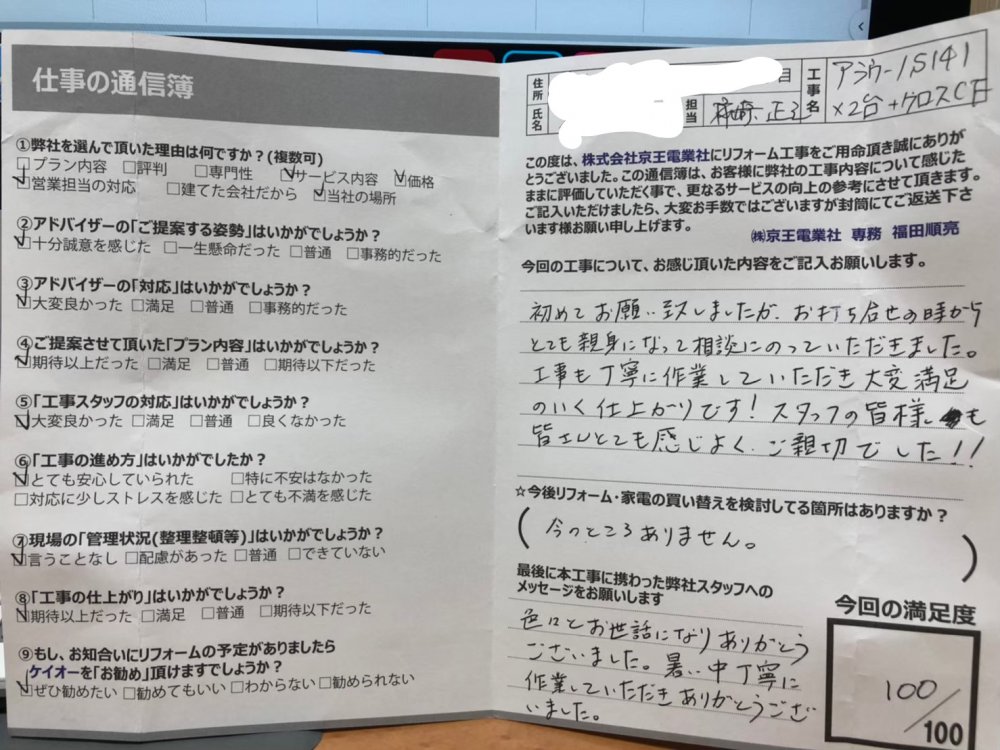 仕事の通信簿
①弊社を選んで頂いた理由は何ですか?(複数可)
□プラン内容 □評判 □専門性 ☑サービス内容 ☑価格
☑営業担当の対応 □建てた会社だから ☑当社の場所
②アドバイザーの「ご提案する姿勢」はいかがでしょうか?
☑十分誠意を感じた □一生懸命だった □普通 □事務的だった
③アドバイザーの「対応」はいかがでしょうか?
☑大変良かった □満足 □普通 □事務的だった
④ご提案させて頂いた「プラン内容」はいかがでしょうか?
☑期待以上だった □満足 □普通 □期待以下だった
⑤「工事スタッフの対応」はいかがでしょうか?
☑大変良かった □満足 □普通 □良くなかった
⑥「工事の進め方」はいかがでしたか?
☑とても安心していられた □特に不安はなかった
□対応に少しストレスを感じた □とても不満を感じた
⑦現場の「管理状況(整理整頓等)」はいかがでしょうか?
☑言うことなし □配慮があった □普通 □できていない
⑧「工事の仕上がり」はいかがでしょうか?
☑期待以上だった □満足 □普通 □期待以下だった
⑨もし、お知合いにリフォームの予定がありましたら
ケイオーを「お勧め」頂けますでしょうか?
☑ぜひ勧めたい □勧めてもいい □わからない □勧められない
住所 目
氏名
担当 正
工事名 アラウーノS141
×2台+クロスCF
この度は、株式会社京王電業社にリフォーム工事をご用命頂き誠にありが
とうございました。この通信簿は、お客様に弊社の工事内容について感じた
ままに評価していただく事で、更なるサービスの向上の参考にさせて頂きます。
ご記入いただけましたら、大変お手数ではございますが封筒にてご返送下さ
います様お願い申し上げます。
㈱京王電業社 専務 福田順亮
今回の工事について、お感じ頂いた内容をご記入お願いします。
初めてお願い致しましたが、お打ち合せの時から
とても親身になって相談にのっていただきました。
工事も丁寧に作業していただき大変満足
のいく仕上がりです!スタッフの皆様も
皆さんとても感じよく、ご親切でした!!
☆今後リフォーム・家電の買い替えを検討してる箇所はありますか?
(今のところありません。)
最後に本工事に携わった弊社スタッフへの
メッセージをお願いします
色々とお世話になりありがとう
ございました。暑い中丁寧に
作業していただきありがとうござ
いました。
今回の満足度
100/100